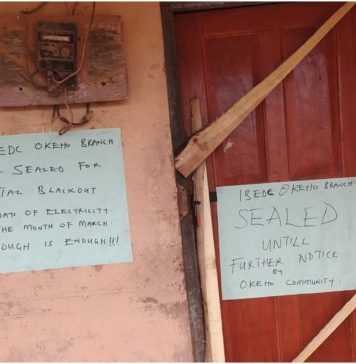 EDC OKEHO BRANCH
SEALED FOR
TAL BLACKOUT
DAYS OF ELECTRICITY
THE MONTH OF MARCH
OUGH IS ENOUGH!!!
IBEDC OKEHO BRANCH
SEALED
UNTILL
FURTHER NOTICE
BY
OKEHO COMMUNITY.